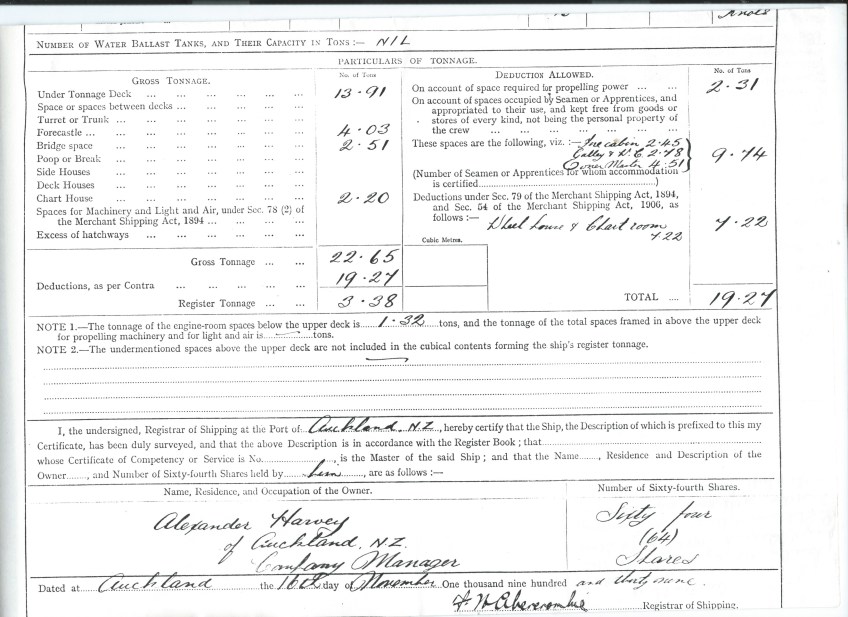 Knots
NUMBER OF WATER BALLAST TANKS, AND THEIR CAPACITY IN TONS :— NIL
PARTICULARS OF TONNAGE.
GROSS TONNAGE. No. of Tons
Under Tonnage Deck ... ... ... ... 13·91
Space or spaces between decks ... ... ... ...
Turret or Trunk ... ... ... ... ...
Forecastle ... ... ... ... ... 4·03
Bridge space ... ... ... ... 2·51
Poop or Break ... ... ... ...
Side Houses ... ... ... ...
Deck Houses ... ... ... ...
Chart House ... ... ... ... 2·20
Spaces for Machinery and Light and Air, under Sec. 78 (2) of
the Merchant Shipping Act, 1894 ... ... ... ...
Excess of hatchways ... ... ... ...
Gross Tonnage ... ... 22·65
Deductions, as per Contra ... ... ... ... 19·27
Register Tonnage ... ... 3·38
DEDUCTION ALLOWED. No. of Tons
On account of space required for propelling power ... ... 2·31
On account of spaces occupied by Seamen or Apprentices, and
appropriated to their use, and kept free from goods or
stores of every kind, not being the personal property of
the crew ... ... ... ... ... ...
These spaces are the following, viz. :— Fre cabin 2·45
Galley & W.C. 2·78 9·74
Owner Master 4·51
(Number of Seamen or Apprentices for whom accommodation
is certified.................)
Deductions under Sec. 79 of the Merchant Shipping Act, 1894,
and Sec. 54 of the Merchant Shipping Act, 1906, as
follows :—
Wheel house & Chart room 7·22
7·22
Cubic Metres.
TOTAL .... 19·27
NOTE 1.—The tonnage of the engine-room spaces below the upper deck is 1·32 tons, and the tonnage of the total spaces framed in above the upper deck
for propelling machinery and for light and air is — tons.
NOTE 2.—The undermentioned spaces above the upper deck are not included in the cubical contents forming the ship's register tonnage.
I, the undersigned, Registrar of Shipping at the Port of Auckland, N.Z., hereby certify that the Ship, the Description of which is prefixed to this my
Certificate, has been duly surveyed, and that the above Description is in accordance with the Register Book ; that
whose Certificate of Competency or Service is No. , is the Master of the said Ship ; and that the Name......, Residence and Description of the
Owner......, and Number of Sixty-fourth Shares held by him, are as follows :—
Name, Residence, and Occupation of the Owner. Number of Sixty-fourth Shares.
Alexander Harvey Sixty four
of Auckland, N.Z. (64)
Company Manager Shares
Dated at Auckland the 16th day of November One thousand nine hundred and thirty nine.
Abercrombie Registrar of Shipping.